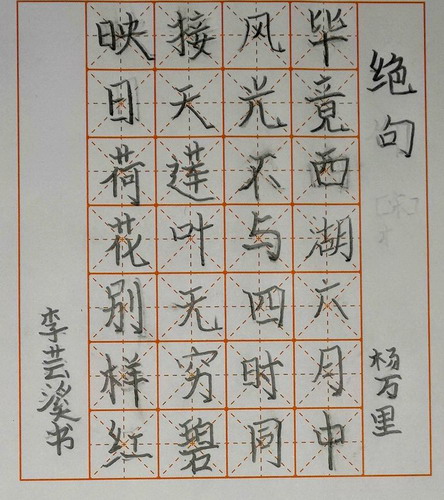 绝句
[宋]
杨万里
毕竟西湖六月中
风光不与四时同
接天莲叶无穷碧
映日荷花别样红
李芸溪书